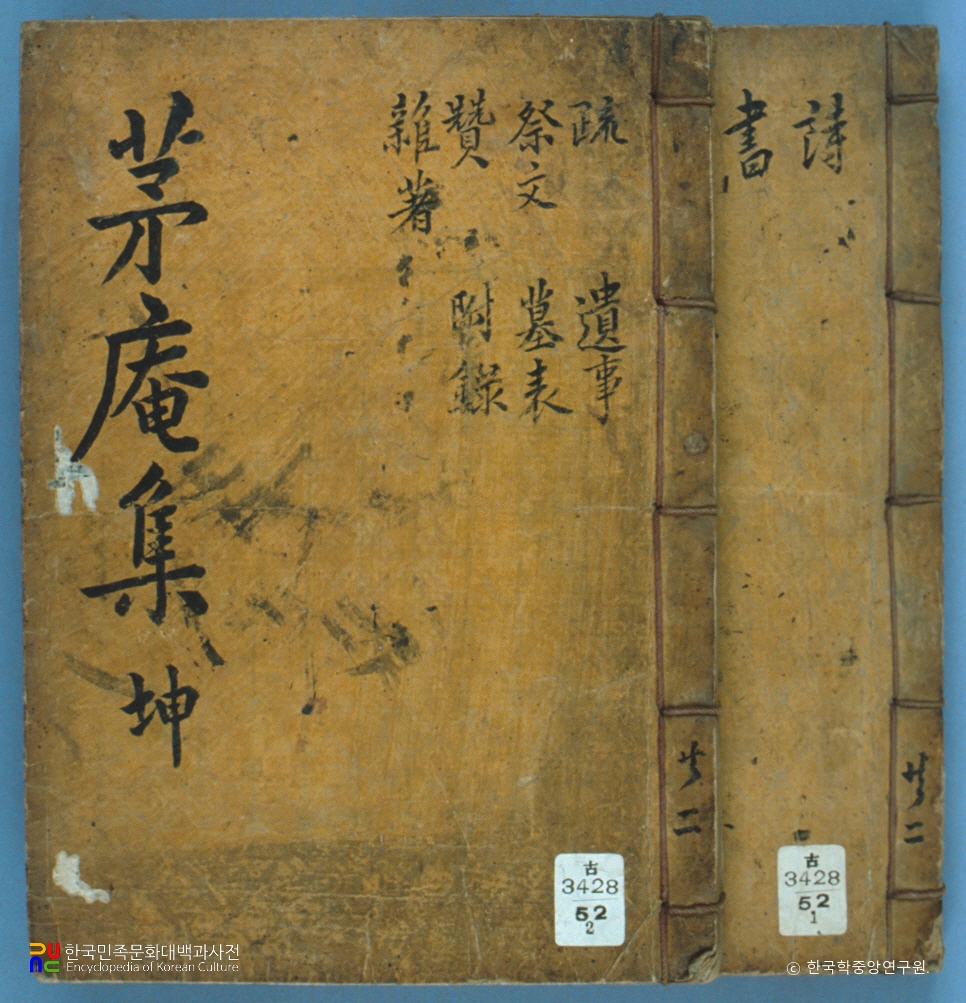 詩
書
共二
古
3428
52
1
疏 遺事
祭文 墓表
贊 附錄
雜著
茅庵集 坤
共二
古
3428
52
2
한국민족문화대백과사전
Encyclopedia of Korean Culture
© 한국학중앙연구원.